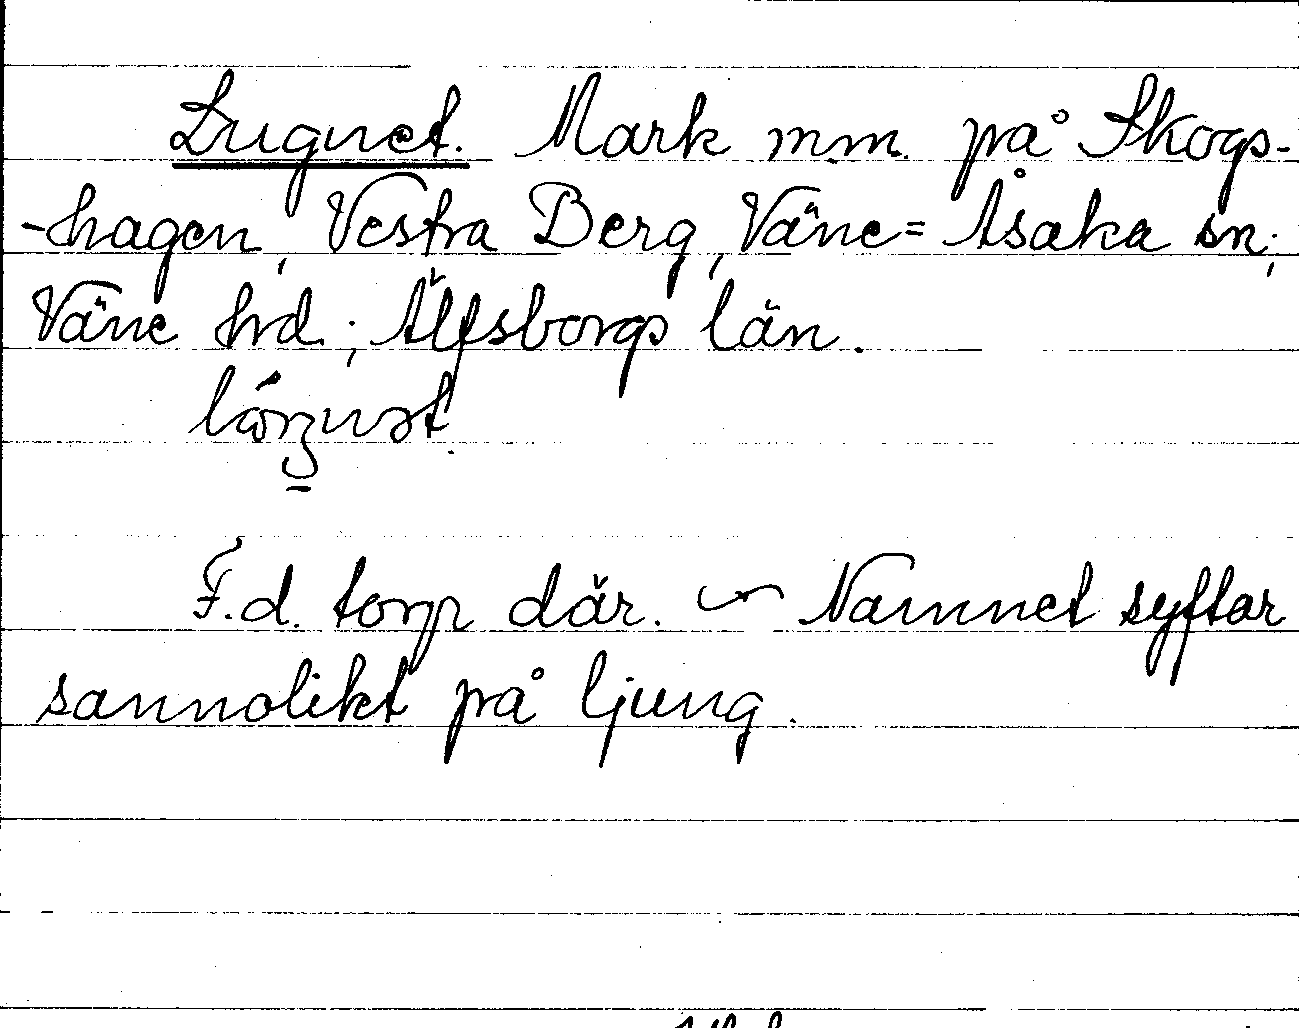 Lugnet. Mark m.m. på Skogs-
-hagen, Vestra Berg, Väne=Åsaka sn;
Väne hrd; Älfsborgs län.
F.d. torp där. ~ Namnet syftar
sannolikt på ljung.